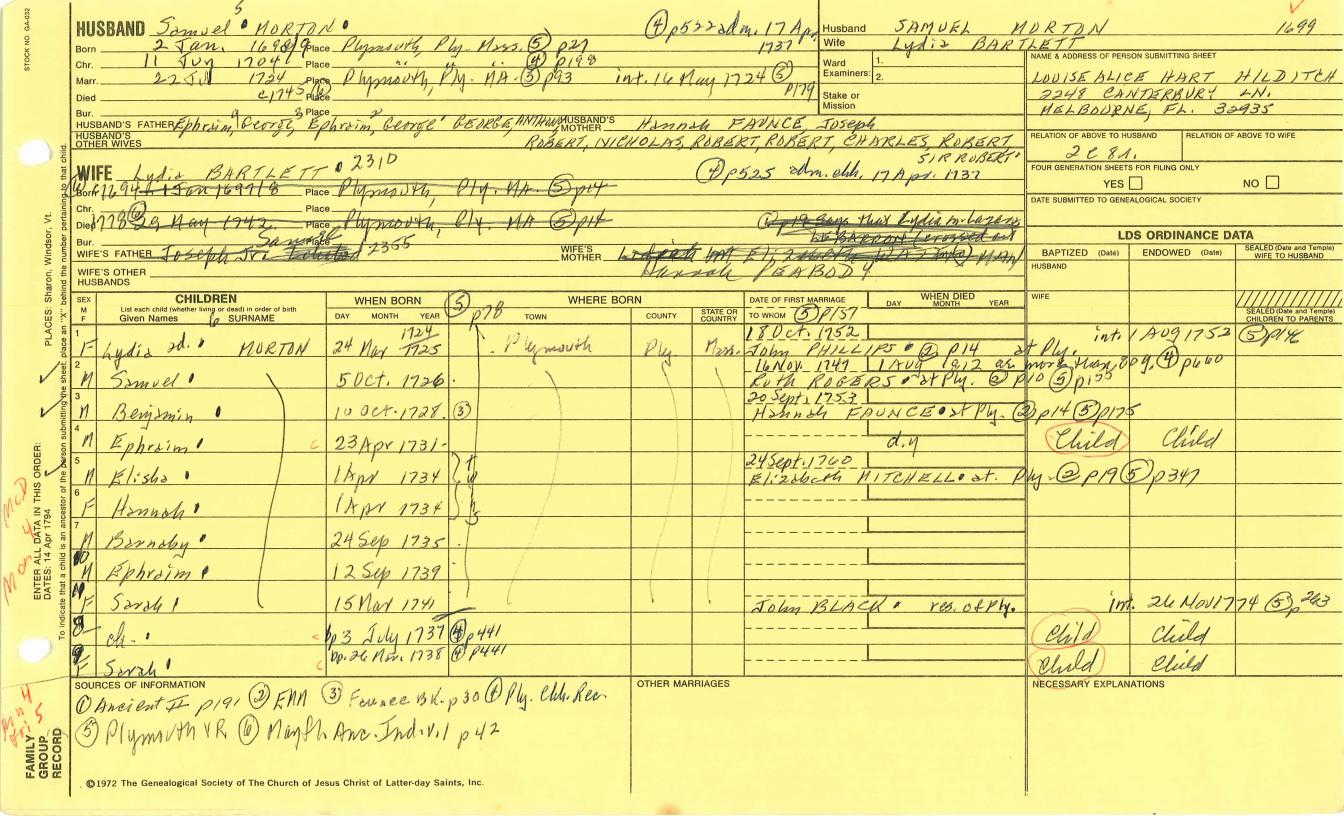 STOCK NO. GA-032
HUSBAND Samuel MORTON 5
Born 2 Jan. 1698/9 Place Plymouth, Ply. Mass. (5) p27
(4) p522 adm. 17 Apr. 1737
Chr. 11 July 1704 Place " " " (4) p198
Marr. 22 Jul 1724 Place Plymouth, Ply. MA. (3) p93 int. 16 May 1724 (5) p179
Died c1745 (6) Place
Bur. Place
HUSBAND'S FATHER Ephraim,4 George,3 Ephraim,2 George1 GEORGE, ANTHONY HUSBAND'S MOTHER Hannah FAUNCE, Joseph
HUSBAND'S OTHER WIVES ROBERT, NICHOLAS, ROBERT, ROBERT, CHARLES, ROBERT
SIR ROBERT
WIFE Lydia BARTLETT 231D
(4) p525 adm. chh. 17 Apr. 1737
Born 1694 1 Jan 1697/8 Place Plymouth, Ply. MA. (5) p14
Chr. Place
Died 1778 (6) 29 May 1742. Place Plymouth, Ply. MA (5) p14
says that Lydia m. Lazarus
LEBARRON
Bur. Place
WIFE'S FATHER Joseph Jr. Samuel 2355 WIFE'S MOTHER Hannah PEABODY
WIFE'S OTHER HUSBANDS
Husband SAMUEL MORTON 1699
Wife Lydia BARTLETT
Ward Examiners: 1.
2.
Stake or Mission
NAME & ADDRESS OF PERSON SUBMITTING SHEET
LOUISE ALICE HART HILDITCH
2248 CANTERBURY LN.
MELBOURNE, FL. 32935
RELATION OF ABOVE TO HUSBAND RELATION OF ABOVE TO WIFE
2C8R.
FOUR GENERATION SHEETS FOR FILING ONLY
YES NO
DATE SUBMITTED TO GENEALOGICAL SOCIETY
LDS ORDINANCE DATA
BAPTIZED (Date) ENDOWED (Date) SEALED (Date and Temple) WIFE TO HUSBAND
HUSBAND
WIFE
SEALED (Date and Temple) CHILDREN TO PARENTS
SEX M F CHILDREN WHEN BORN (5) p78 WHERE BORN DATE OF FIRST MARRIAGE WHEN DIED
List each child (whether living or dead) in order of birth
Given Names SURNAME DAY MONTH YEAR TOWN COUNTY STATE OR COUNTRY TO WHOM (5) p157 DAY MONTH YEAR
1 F Lydia MORTON 24 Mar 1724 1725 Plymouth Ply Mass. 18 Oct. 1752 int. 1 AUG 1752 (5) p
John PHILLIPS (2) p14 at Ply.
2 M Samuel 5 Oct. 1726 16 Nov. 1747 (4) p660
Ruth ROGERS at Ply. (2) p10 (5)
3 M Benjamin 10 Oct. 1728. (3) 20 Sept. 1753
Hannah FAUNCE at Ply. (2) p14 (5) p175
4 M Ephraim c 23 Apr 1731 d.y Child Child
5 M Elisha 1 Apr 1734 24 Sept. 1760
Elizabeth MITCHELL at Ply. (2) p19 (5) p347
6 F Hannah 1 Apr 1734
7 M Barnaby 24 Sep 1735
10 M Ephraim 12 Sep 1739
11 F Sarah 15 Mar 1741 John BLACK res. of Ply. int. 26 Nov 1774 (5) p263
8 ch. c bp 3 July 1737 (4) p441 Child Child
9 F Sarah c bp. 26 Nov. 1738 (4) p441 Child Child
SOURCES OF INFORMATION
(1) Ancient II p191 (2) EMM (3) Faunce BK. p30 (4) Ply. Chh. Rec.
(5) Plymouth VR (6) Mayfl. Anc. Ind. v.1 p42
OTHER MARRIAGES
NECESSARY EXPLANATIONS
©1972 The Genealogical Society of The Church of Jesus Christ of Latter-day Saints, Inc.
PLACES: Sharon, Windsor, Vt.
ENTER ALL DATA IN THIS ORDER:
DATES: 14 Apr 1794
To indicate that a child is an ancestor of the person submitting the sheet, place an "X" behind the number pertaining to that child.
FAMILY GROUP RECORD